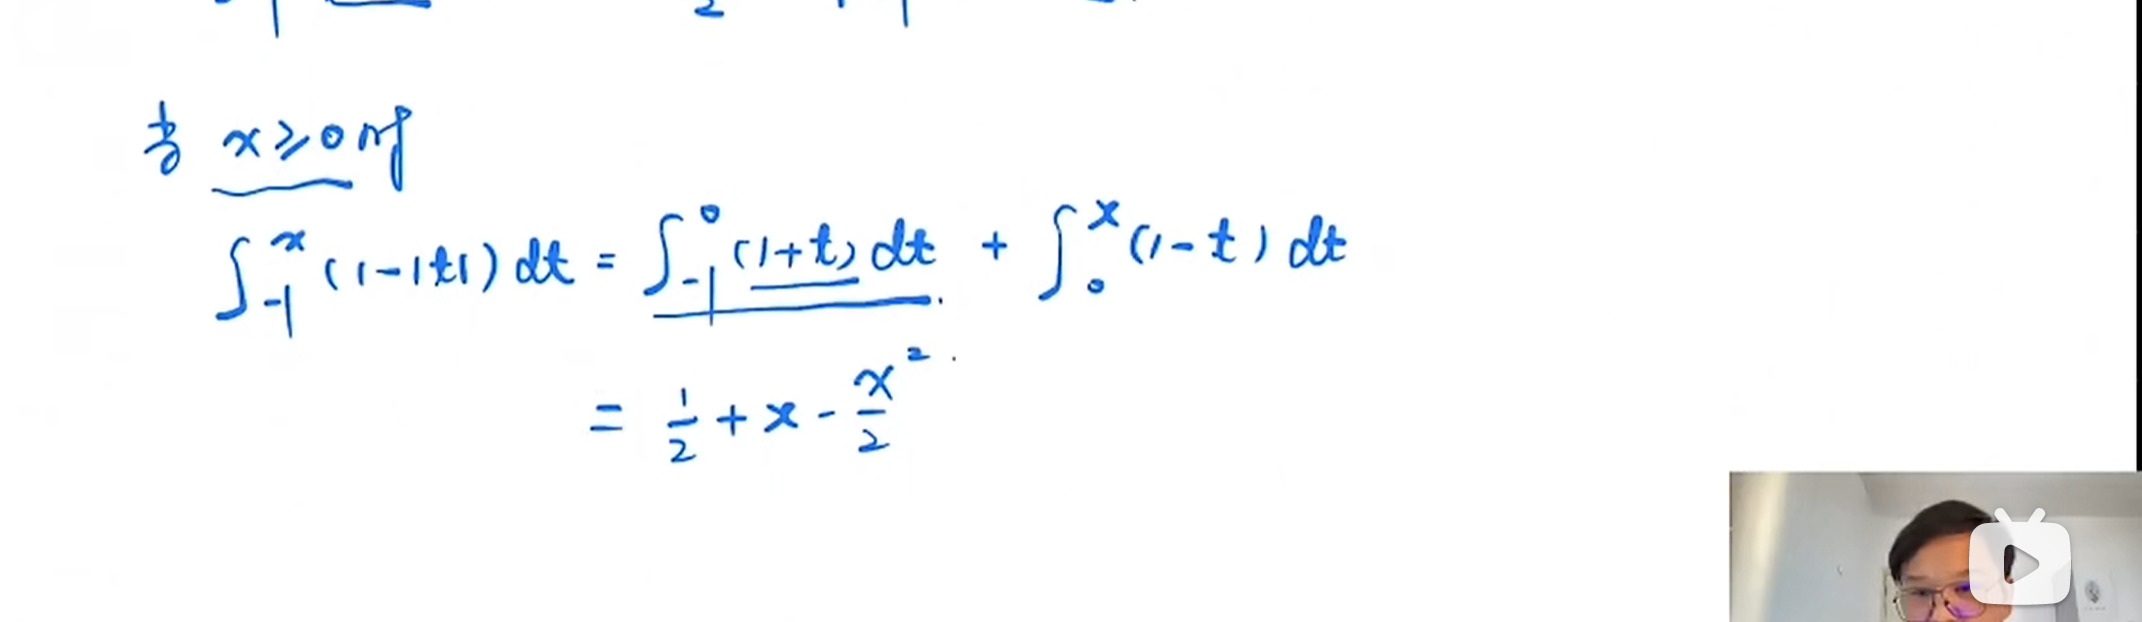 当 x≥0 时
∫_{-1}^{x} (1-|t|) dt = ∫_{-1}^{0} (1+t) dt + ∫_{0}^{x} (1-t) dt
= 1/2 + x - x²/2